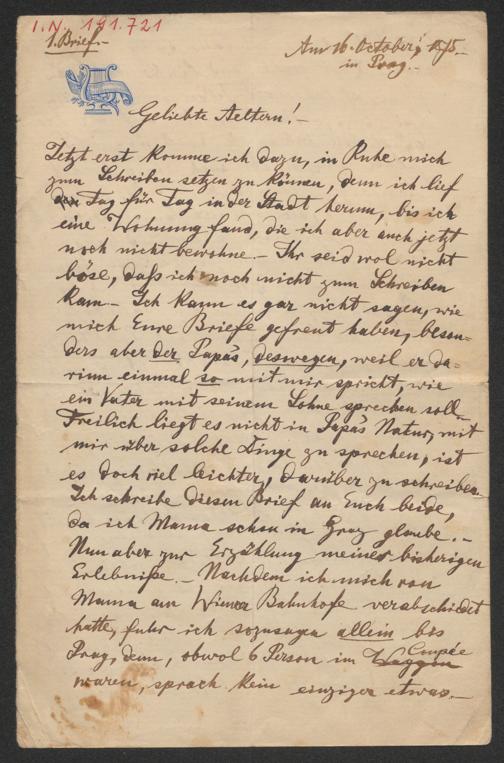 I.N. 191.721
1. Brief.-
Am 16. October 1875.-
in Prag.-
Geliebte Aeltern!-
Jetzt erst komme ich dazu, in Ruhe mich
zum Schreiben setzen zu können, denn ich lief
Tag für Tag in der Stadt herum, bis ich
eine Wohnung fand, die ich aber auch jetzt
noch nicht bewohne.- Ihr seid wol nicht
böse, daß ich noch nicht zum Schreiben
kam.- Ich kann es gar nicht sagen, wie
mich Eure Briefe gefreut haben, beson-
ders aber der Papa's, deswegen, weil er da-
rinn einmal so mit mir spricht, wie
ein Vater mit seinem Sohne sprechen soll.-
Freilich liegt es nicht in Papa's Natur, mit
mir über solche Dinge zu sprechen, ist
es doch viel leichter, darüber zu schreiben.-
Ich schreibe diesen Brief an Euch beide,
da ich Mama schon in Graz glaube.-
Nun aber zur Erzählung meiner bisherigen
Erlebniße.- Nachdem ich mich von
Mama am Wiener Bahnhofe verabschiedet
hatte, fuhr ich sozusagen allein bis
Prag, denn, obwol 6 Person im Waggon Cupée
waren, sprach kein einziger etwas.-